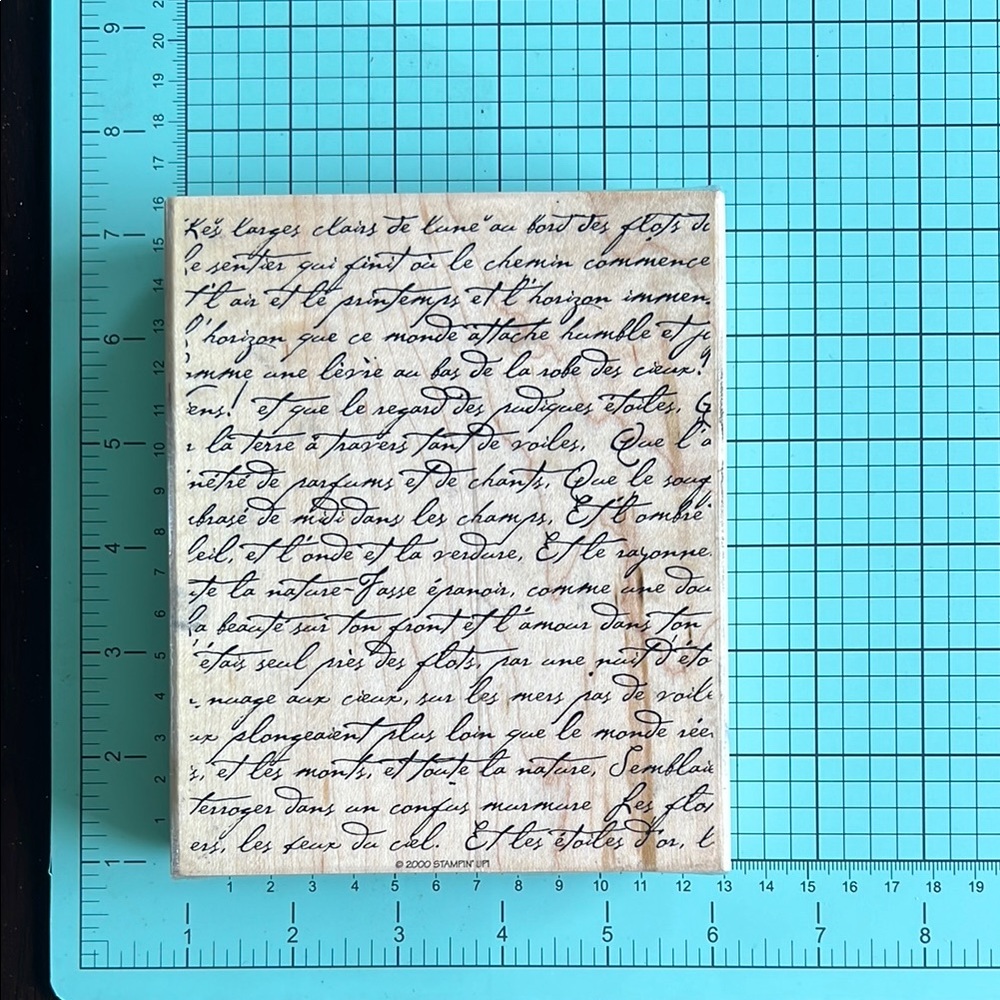 Les larges clairs de lune au bord des flots do
le sentier qui finit où le chemin commence
t l'air et le printemps et l'horizon immen
l'horizon que ce monde attache humble et jo
omme une lèvre au bas de la robe des cieux!
ens! et que le regard des pudiques étoiles,
la terre à travers tant de voiles, Que l'a
nétré de parfums et de chants, Que le souf
brasé de midi dans les champs, Et l'ombre
leil, et l'onde et la verdure, Et le rayonne
te la nature-Fasse épanoir, comme une dou
la beauté sur ton front et l'amour dans ton
'étais seul près des flots, par une nuit d'éto
nuage aux cieux, sur les mers pas de voile
ux plongeaient plus loin que le monde rée
s, et les monts, et toute la nature, Semblaie
terroger dans un confus murmure Les flo
ers, les feux du ciel. Et les étoiles d'or, l
© 2000 STAMPIN' UP!
9 8 7 6 5 4 3 2 1
20 19 18 17 16 15 14 13 12 11 10 9 8 7 6 5 4 3 2 1
1 2 3 4 5 6 7 8 9 10 11 12 13 14 15 16 17 18 19
1 2 3 4 5 6 7 8